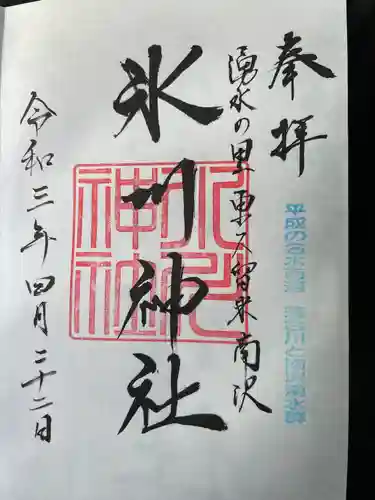 奉拝
平成の名水百選 落合川と南沢湧水群
湧水の里東久留米南沢
氷川神社
氷川神社
令和三年四月二十二日